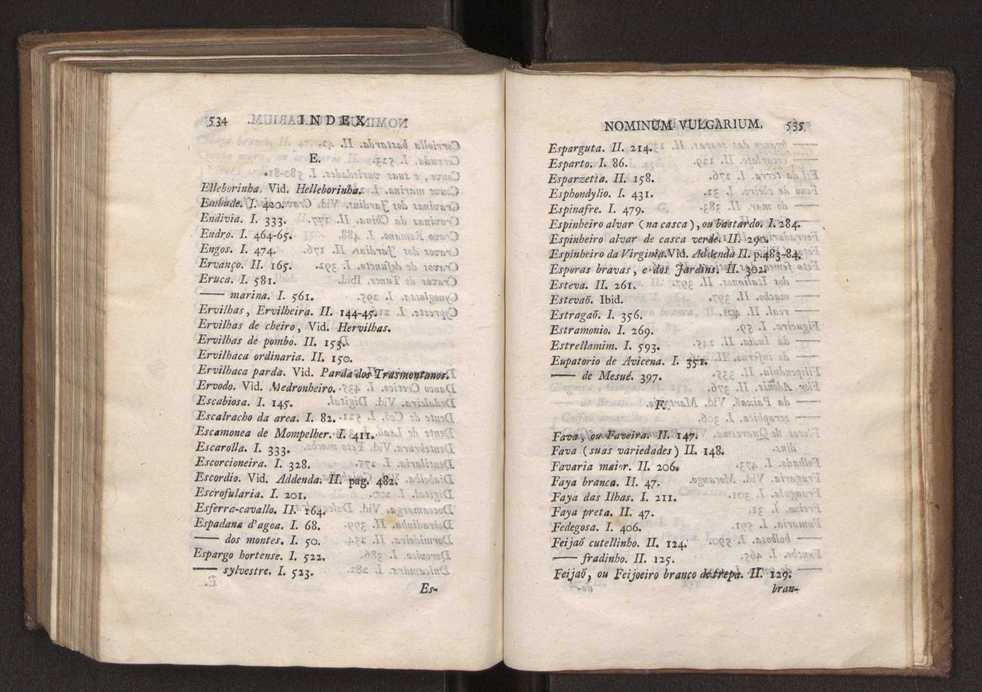 534 INDEX
E.
Elleborinha. Vid. Helleborinha.
Embude. I. 420.
Endivia. I. 333.
Endro. I. 464-65.
Engos. I. 474.
Ervanço. II. 165.
Eruca. I. 581.
—— marina. I. 561.
Ervilhas, Ervilheira. II. 144-45.
Ervilhas de cheiro, Vid. Hervilhas.
Ervilhas de pombo. II. 153.
Ervilhaca ordinaria. II. 150.
Ervilhaca parda. Vid. Parda dos Trasmontanos.
Ervodo. Vid. Medronheiro.
Escabiosa. I. 145.
Escalracho da area. I. 82.
Escamonea de Mompelher. I. 411.
Escarolla. I. 333.
Escorcioneira. I. 328.
Escordio. Vid. Addenda. II. pag. 482.
Escrofularia. I. 201.
Esferra-cavallo. II. 164.
Espadana d'agoa. I. 68.
—— dos montes. I. 50.
Espargo hortense. I. 522.
—— sylvestre. I. 523.
Es-
NOMINUM VULGARIUM. 535
Esparguta. II. 214.
Esparto. I. 86.
Esparzetta. II. 158.
Esphondylio. I. 431.
Espinafre. I. 479.
Espinheiro alvar (na casca), ou bastardo. I. 284.
Espinheiro alvar de casca verde. II. 290.
Espinheiro da Virginia. Vid. Addenda II. p. 483-84.
Esporas bravas, e dos Jardins. II. 302.
Esteva. II. 261.
Estevaõ. Ibid.
Estragaõ. I. 356.
Estramonio. I. 269.
Estrellamim. I. 593.
Eupatorio de Avicena. I. 351.
—— de Mesué. 397.
F.
Fava, ou Faveira. II. 147.
Fava (suas variedades) II. 148.
Favaria maior. II. 206.
Faya branca. II. 47.
Faya das Ilhas. I. 211.
Faya preta. II. 47.
Fedegosa. I. 406.
Feijaõ cutellinho. II. 124.
—— fradinho. II. 125.
Feijaõ, ou Feijoeiro branco de trepa. II. 129.
bran-